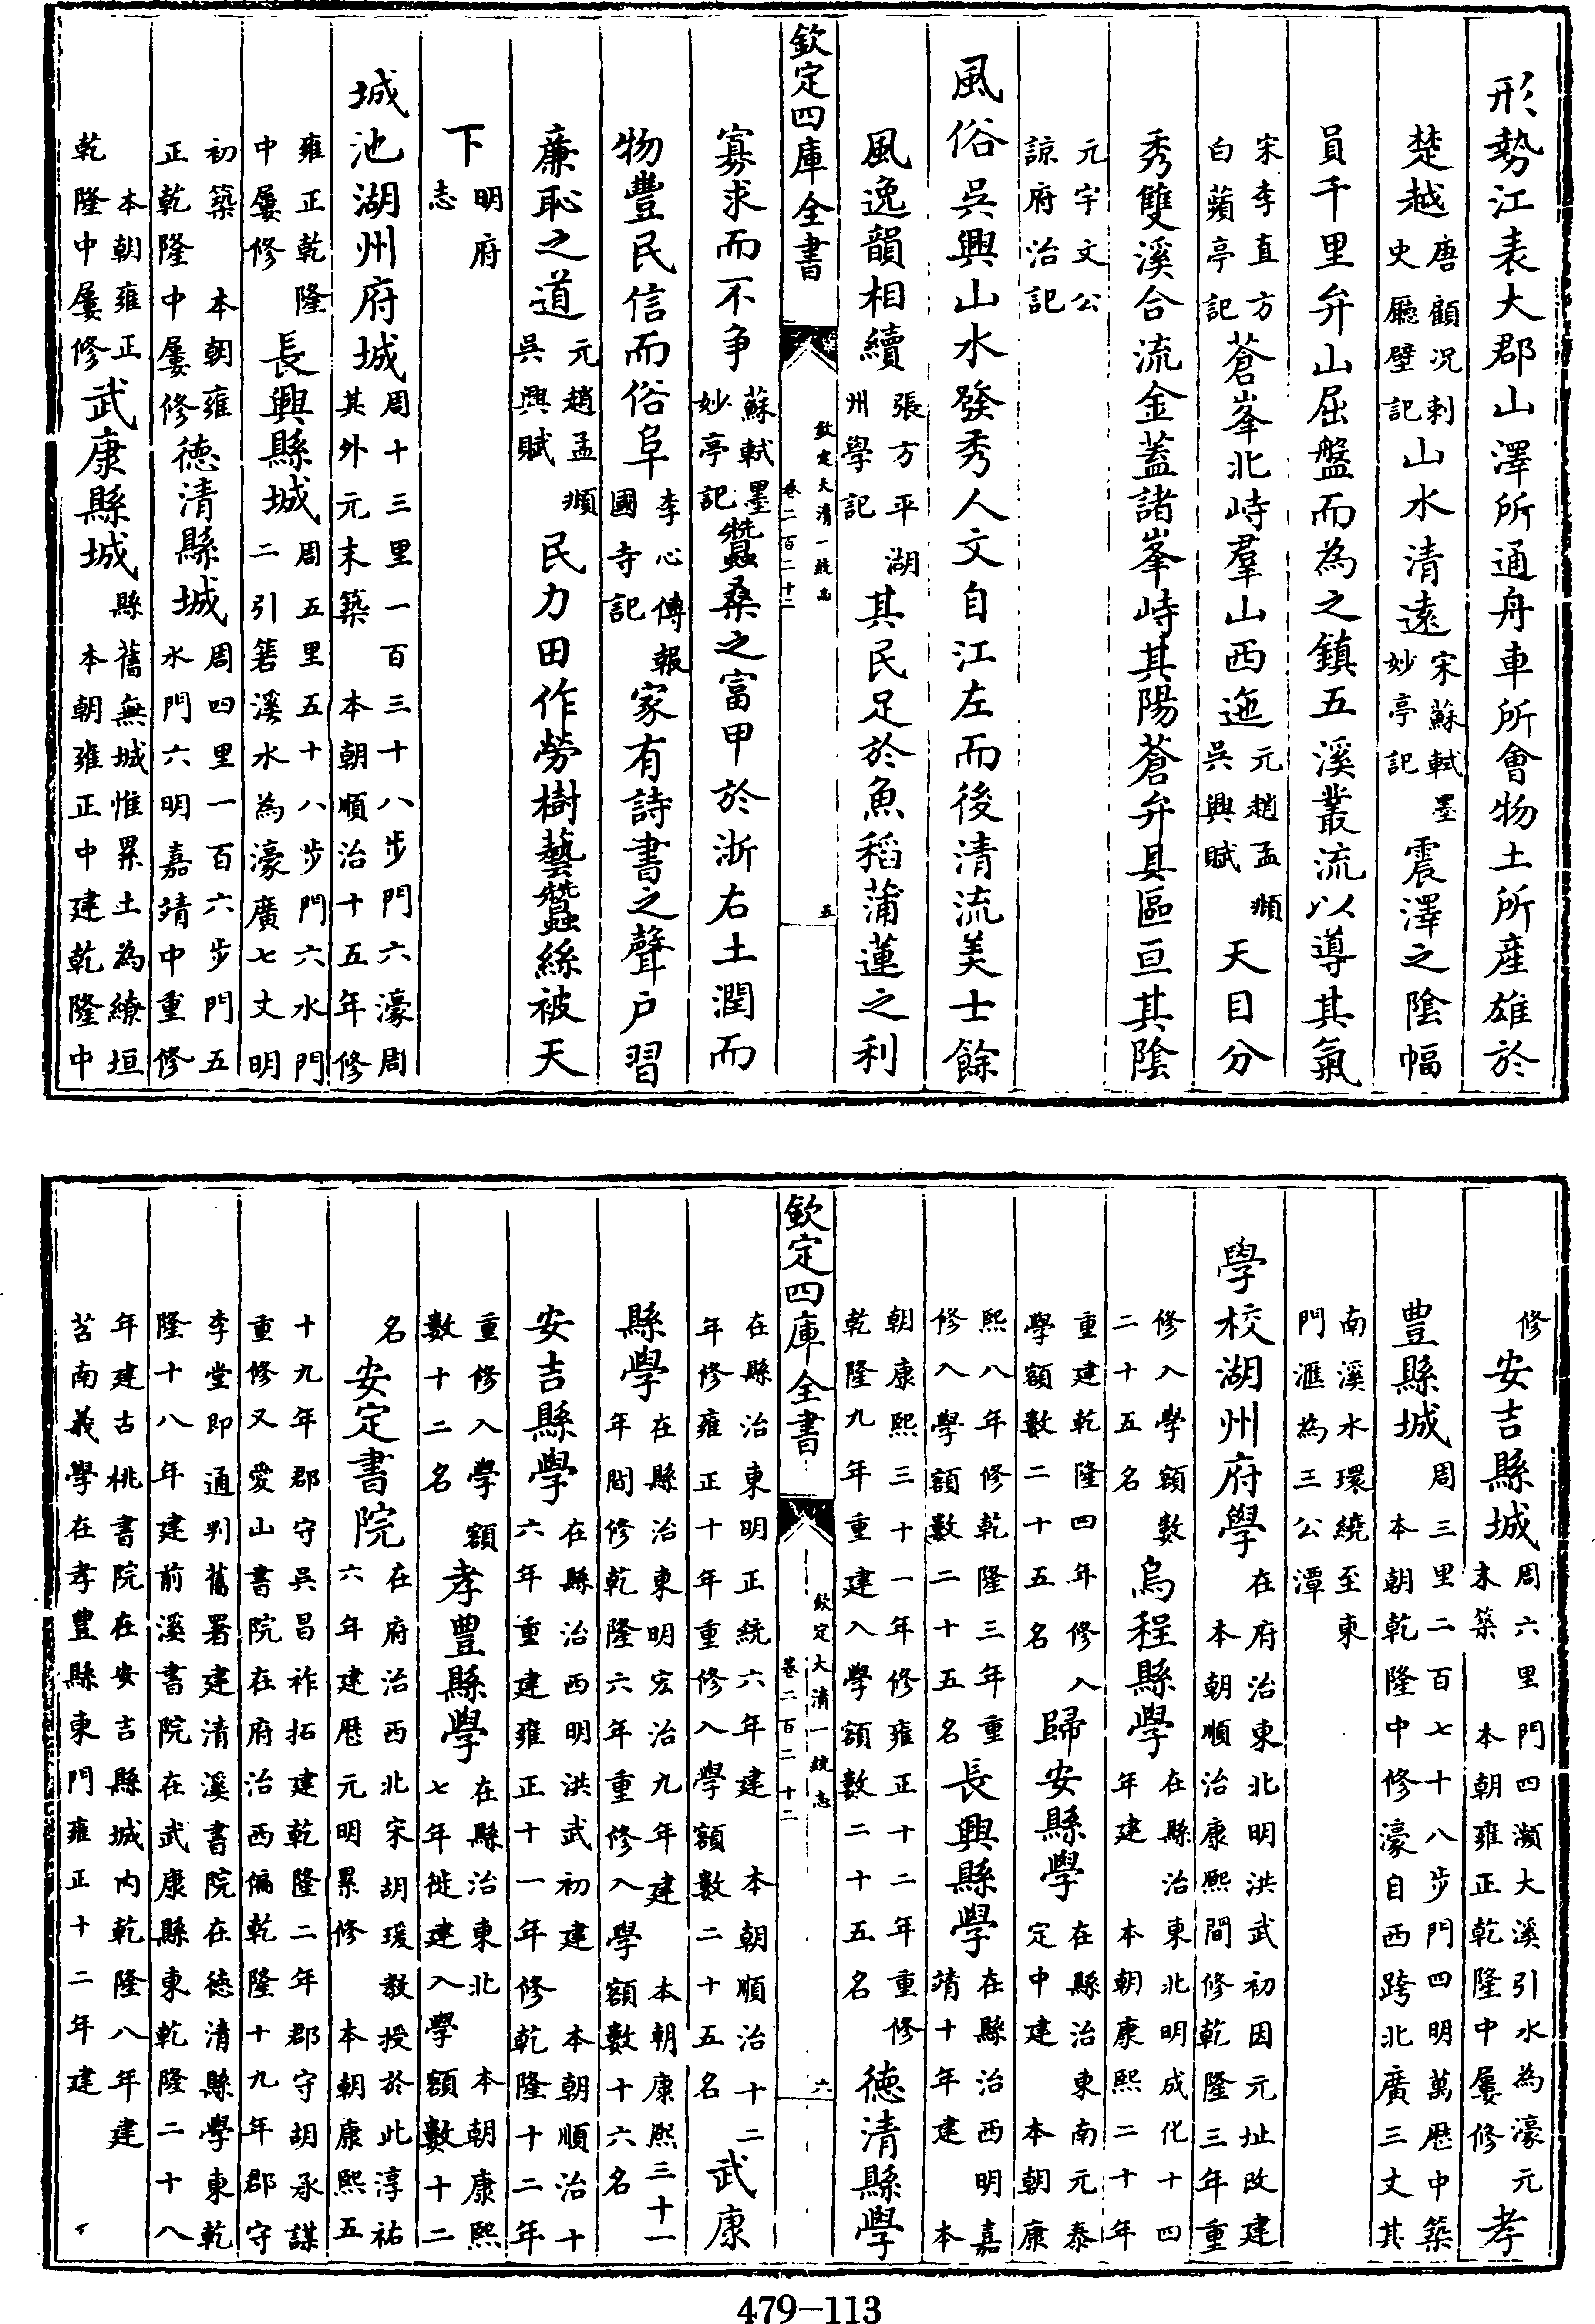 形勢江表大郡山澤所通舟車所會物土所産雄於
楚越唐顧況刺史廳壁記山水清遠宋蘇軾墨妙亭記震澤之隂幅
員千里弁山屈盤而為之鎮五溪叢流以導其氣
宋李直方白蘋亭記蒼峯北峙羣山西迤元趙孟頫吳興賦天目分
秀雙溪合流金蓋諸峯峙其陽蒼弁具區亘其隂
元宇文公諒府治記
風俗吳興山水發秀人文自江左而後清流美士餘
風逸韻相續張方平湖州學記其民足於魚稻蒲蓮之利
欽定四庫全書
欽定大清一統志
卷二百二十二
五
寡求而不争蘇軾墨妙亭記蠶桑之富甲於浙右土潤而
物豐民信而俗阜李心傳報國寺記家有詩書之聲户習
廉恥之道元趙孟頫吳興賦民力田作勞樹藝蠶絲被天
下明府志
城池湖州府城周十三里一百三十八步門六濠周其外元末築本朝順治十五年修
雍正乾隆中屢修長興縣城周五里五十八步門六水門二引箬溪水為濠廣七丈明
初築本朝雍正乾隆中屢修德清縣城周四里一百六步門五水門六明嘉靖中重修
本朝雍正乾隆中屢修武康縣城縣舊無城惟累土為繚垣本朝雍正中建乾隆中
修安吉縣城周六里門四瀕大溪引水為濠元末築本朝雍正乾隆中屢修孝
豐縣城周三里二百七十八步門四明萬厯中築本朝乾隆中修濠自西跨北廣三丈其
南溪水環繞至東門滙為三公潭
學校湖州府學在府治東北明洪武初因元址改建本朝順治康熙間修乾隆三年重
修入學額數二十五名烏程縣學在縣治東北明成化十四年建本朝康熙二十年
重建乾隆四年修入學額數二十五名歸安縣學在縣治東南元泰定中建本朝康
熙八年修乾隆三年重修入學額數二十五名長興縣學在縣治西明嘉靖十年建本
朝康熙三十一年修雍正十二年重修乾隆九年重建入學額數二十五名德清縣學
欽定四庫全書
欽定大清一統志
卷二百二十二
六
在縣治東明正統六年建本朝順治十二年修雍正十年重修入學額數二十五名武康
縣學在縣治東明宏治九年建本朝康熙三十一年間修乾隆六年重修入學額數十六名
安吉縣學在縣治西明洪武初建本朝順治十六年重建雍正十一年修乾隆十二年
重修入學額數十二名孝豐縣學在縣治東北本朝康熙七年徙建入學額數十二
名安定書院在府治西北宋胡瑗教授於此淳祐六年建厯元明累修本朝康熙五
十九年郡守吳昌祚拓建乾隆二年郡守胡承謀重修又愛山書院在府治西偏乾隆十九年郡守
李堂即通判舊署建清溪書院在德清縣學東乾隆十八年建前溪書院在武康縣東乾隆二十八
年建古桃書院在安吉縣城内乾隆八年建苕南義學在孝豐縣東門雍正十二年建
479-113